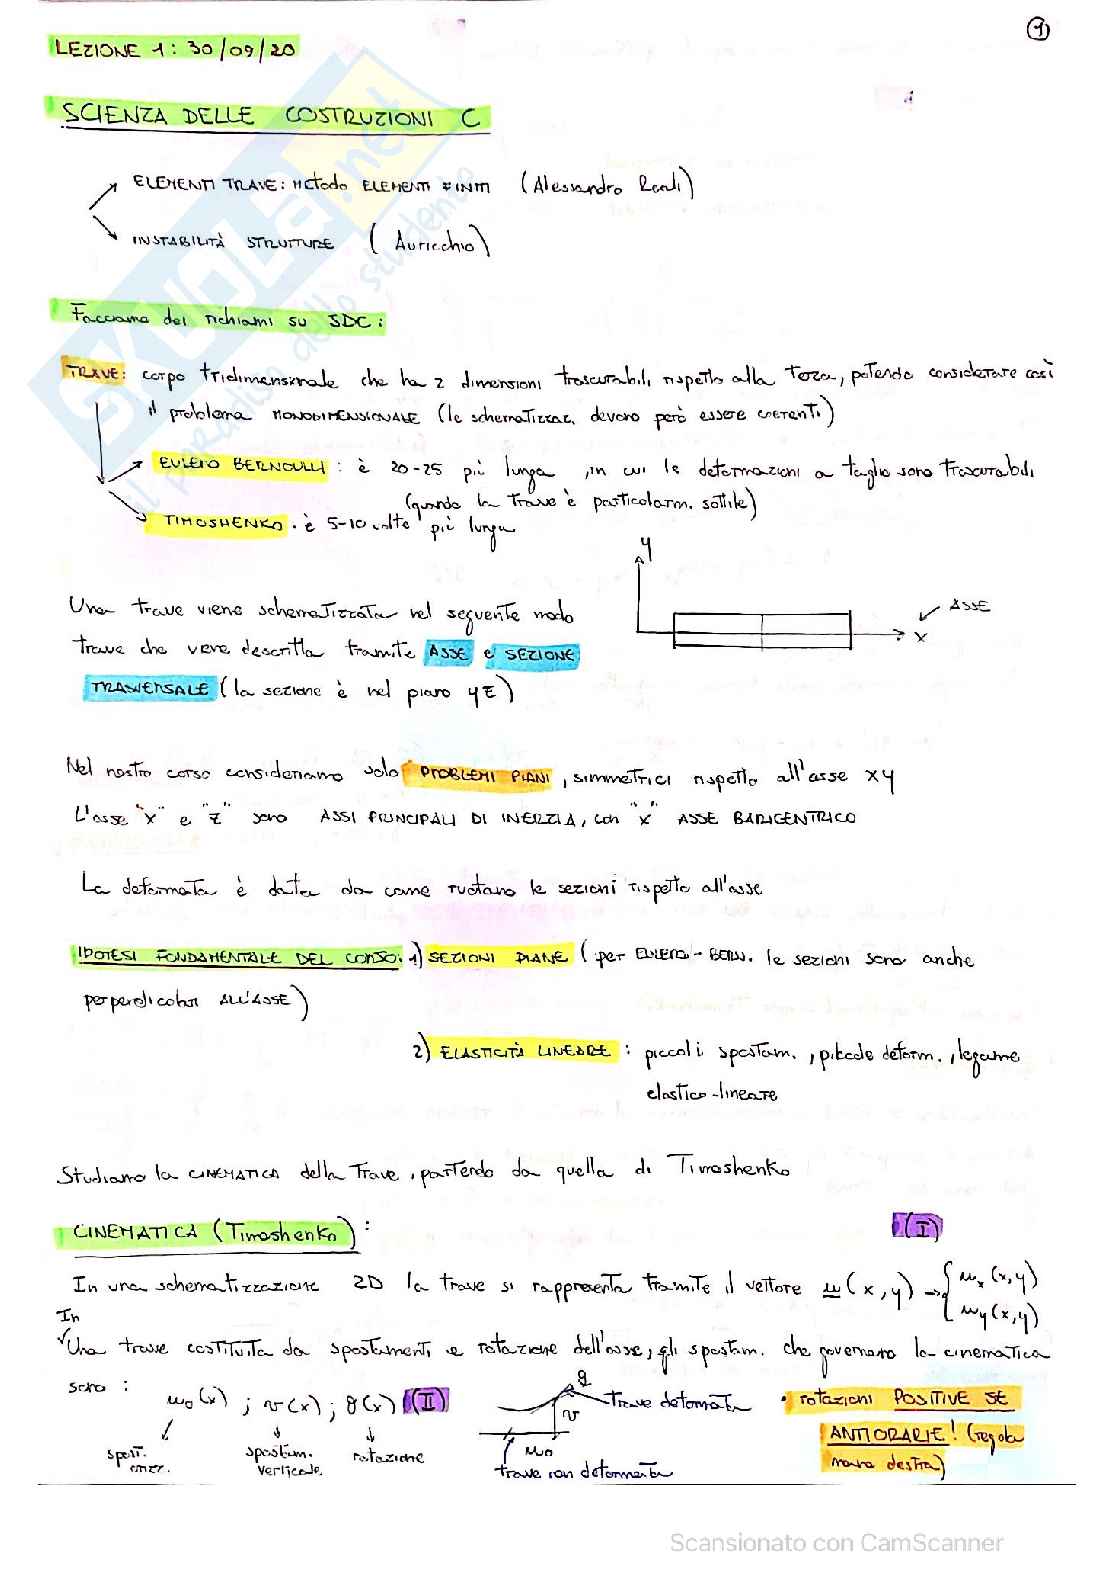 1
LEZIONE 1: 30/09/20
SCIENZA DELLE COSTRUZIONI C
ELEMENTI TRAVE: Metodo ELEMENTI FINITI (Alessandro Reali)
INSTABILITÀ STRUTTURE (Auricchio)
Facciamo dei richiami su SDC:
TRAVE: corpo tridimensionale che ha 2 dimensioni trascurabili rispetto alla terza, potendo considerare così
il problema MONODIMENSIONALE (le schematizzaz. devono però essere coerenti)
EULERO BERNOULLI: è 20-25 più lunga, in cui le deformazioni a taglio sono trascurabili
(quando la trave è particolarm. sottile)
TIMOSHENKO: è 5-10 volte più lunga
y
Una trave viene schematizzata nel seguente modo
ASSE
x
trave che viene descritta tramite ASSE e SEZIONE
TRASVERSALE (la sezione è nel piano yz)
Nel nostro corso consideriamo solo PROBLEMI PIANI, simmetrici rispetto all'asse xy
L'asse "x" e "z" sono ASSI PRINCIPALI DI INERZIA, con "x" ASSE BARICENTRICO
La deformata è data da come ruotano le sezioni rispetto all'asse
IPOTESI FONDAMENTALE DEL CORSO: 1) SEZIONI PIANE (per EULERO-BERN. le sezioni sono anche
perpendicolari ALL'ASSE)
2) ELASTICITÀ LINEARE: piccoli spostam., piccole deform., legame
elastico-lineare
Studiamo la CINEMATICA della Trave, partendo da quella di Timoshenko
CINEMATICA (Timoshenko):
(I)
In una schematizzazione 2D la trave si rappresenta tramite il vettore u(x,y) → { ux(x,y)
uy(x,y)
In
Una trave costituita da spostamenti e rotazione dell'asse, gli spostam. che governano la cinematica
sono: u0(x); v(x); θ(x) (II)
spost. orizz.
spostam. verticale
rotazione
θ
trave deformata
v
u0
trave non deformata
• rotazioni POSITIVE SE
ANTIORARIE! (regola
mano destra)
Scansionato con CamScanner
SKUOLA.net
il paradiso dello studente